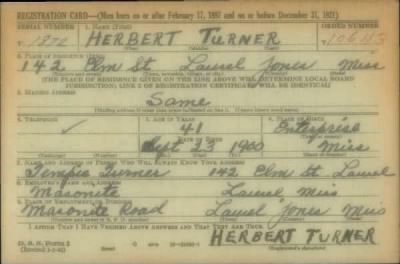 REGISTRATION CARD—(Men born on or after February 17, 1897 and on or before December 31, 1921)
SERIAL NUMBER 1. NAME (Print) ORDER NUMBER
HERBERT TURNER 10643
(First) (Middle) (Last)
2. PLACE OF RESIDENCE (Print)
142 Elm St. Laurel Jones Miss
(Number and street) (Town, township, village, or city) (County) (State)
[THE PLACE OF RESIDENCE GIVEN ON THE LINE ABOVE WILL DETERMINE LOCAL BOARD
JURISDICTION; LINE 2 OF REGISTRATION CERTIFICATE WILL BE IDENTICAL]
3. MAILING ADDRESS
Same
[Mailing address if other than place indicated on line 2. If same insert word same]
4. TELEPHONE 5. AGE IN YEARS 6. PLACE OF BIRTH
41 Enterprise
DATE OF BIRTH
Sept 23 1900 Miss
7. NAME AND ADDRESS OF PERSON WHO WILL ALWAYS KNOW YOUR ADDRESS
Turner 142 Elm St. Laurel
8. EMPLOYER'S NAME AND ADDRESS
Masonite Laurel Miss
9. PLACE OF EMPLOYMENT OR BUSINESS
Masonite Road Laurel Jones Miss
(Number and street or R. F. D. number) (Town) (County) (State)
I AFFIRM THAT I HAVE VERIFIED ABOVE ANSWERS AND THAT THEY ARE TRUE.
HERBERT TURNER
D. S. S. Form 1 (Registrant's signature)